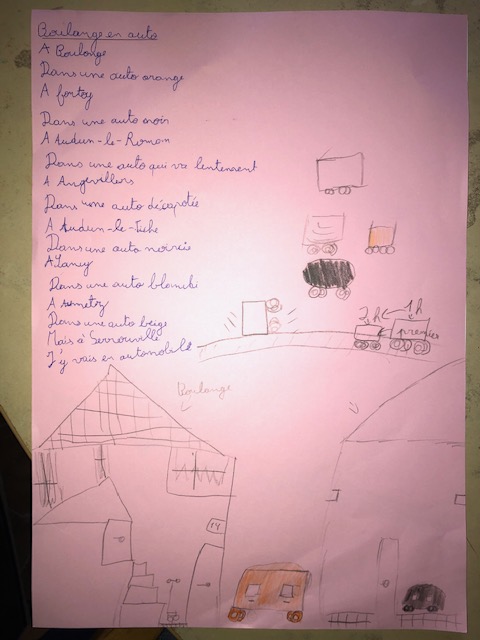 Boulange en auto
A Boulange
Dans une auto orange
A fontoy
Dans une auto noir
A Audun-le-Roman
Dans une auto qui va lentement
A Angevillers
Dans une auto décapotée
A Audun-le-Tiche
Dans une auto noircie
A
Dans une auto blanchi
A
Dans une auto beige
Mais à Serrouville
J'y vais en automobile
2h
1h
premier
Boulange
14